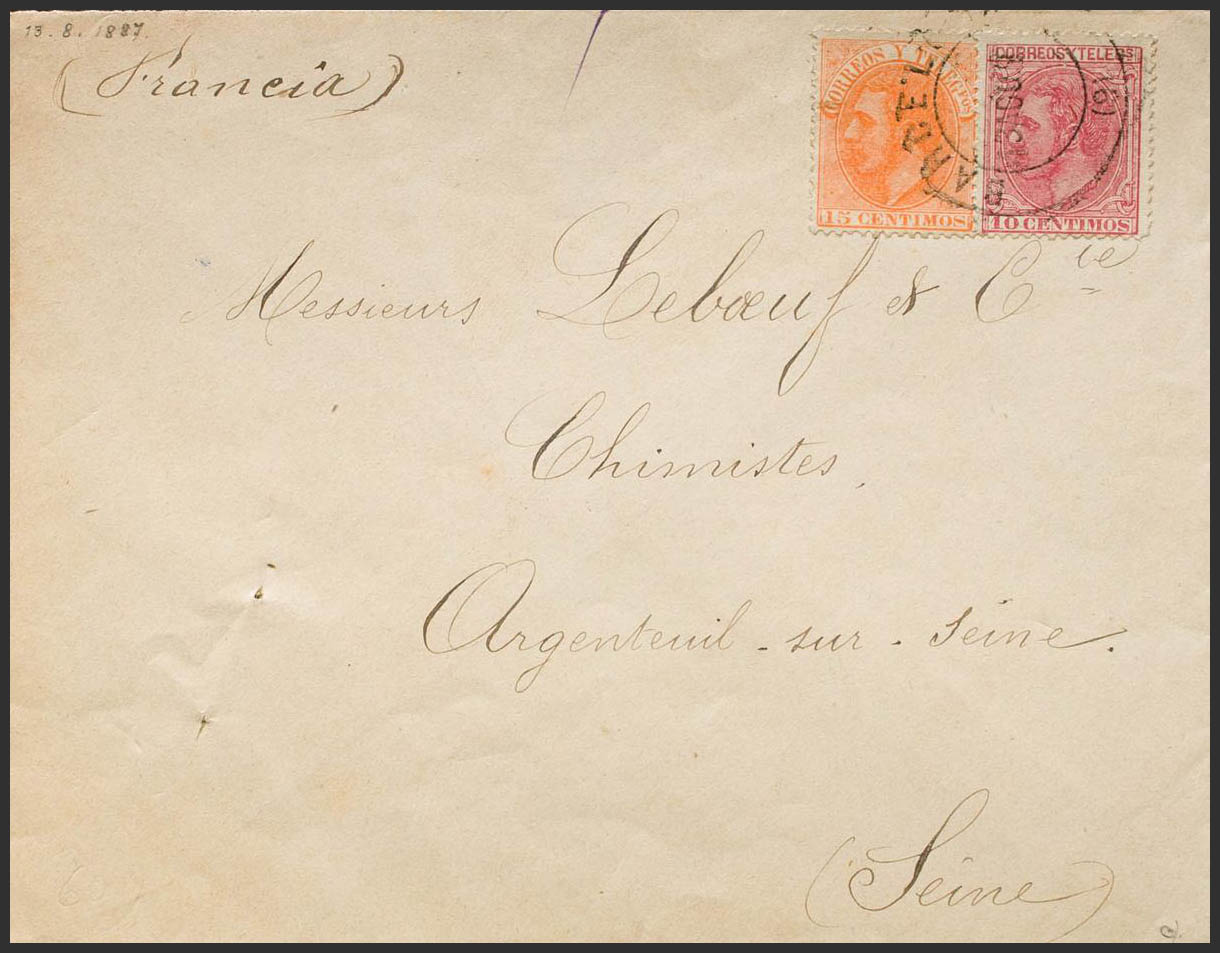 13. 8. 1887.
(Francia)
CORREOS Y TELEGFOS
15 CENTIMOS
CORREOS Y TELEGS
10 CENTIMOS
(5)
Messieurs Lebœuf & Cie
Chimistes,
Argenteuil-sur-Seine.
(Seine)